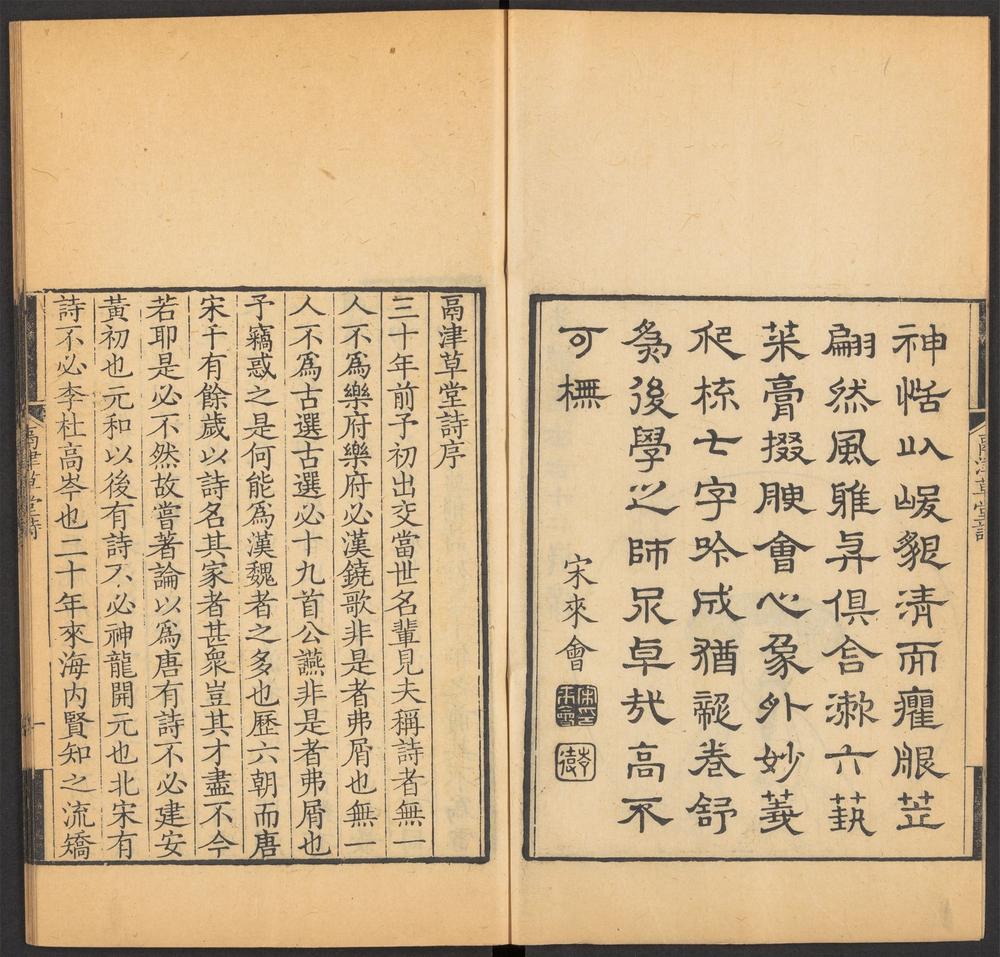 神恬以峻貌清而癯服芷
翩然風雅与俱含漱六藝
采膏掇腴會心象外妙義
爬梳七字吟成猶龍卷舒
為後學之師卓哉高不
可橅
宋來會
鬲津草堂詩
鬲津草堂詩序
三十年前予初出交當世名輩見夫稱詩者無一
人不為樂府樂府必漢鐃歌非是者弗屑也無一
人不為古選古選必十九首公讌非是者弗屑也
予竊惑之是何能為漢魏者之多也歷六朝而唐
宋千有餘歲以詩名其家者甚衆豈其才盡不今
若耶是必不然故嘗著論以為唐有詩不必建安
黃初也元和以後有詩不必神龍開元也北宋有
詩不必李杜高岑也二十年來海內賢知之流矯
鬲津草堂詩
一